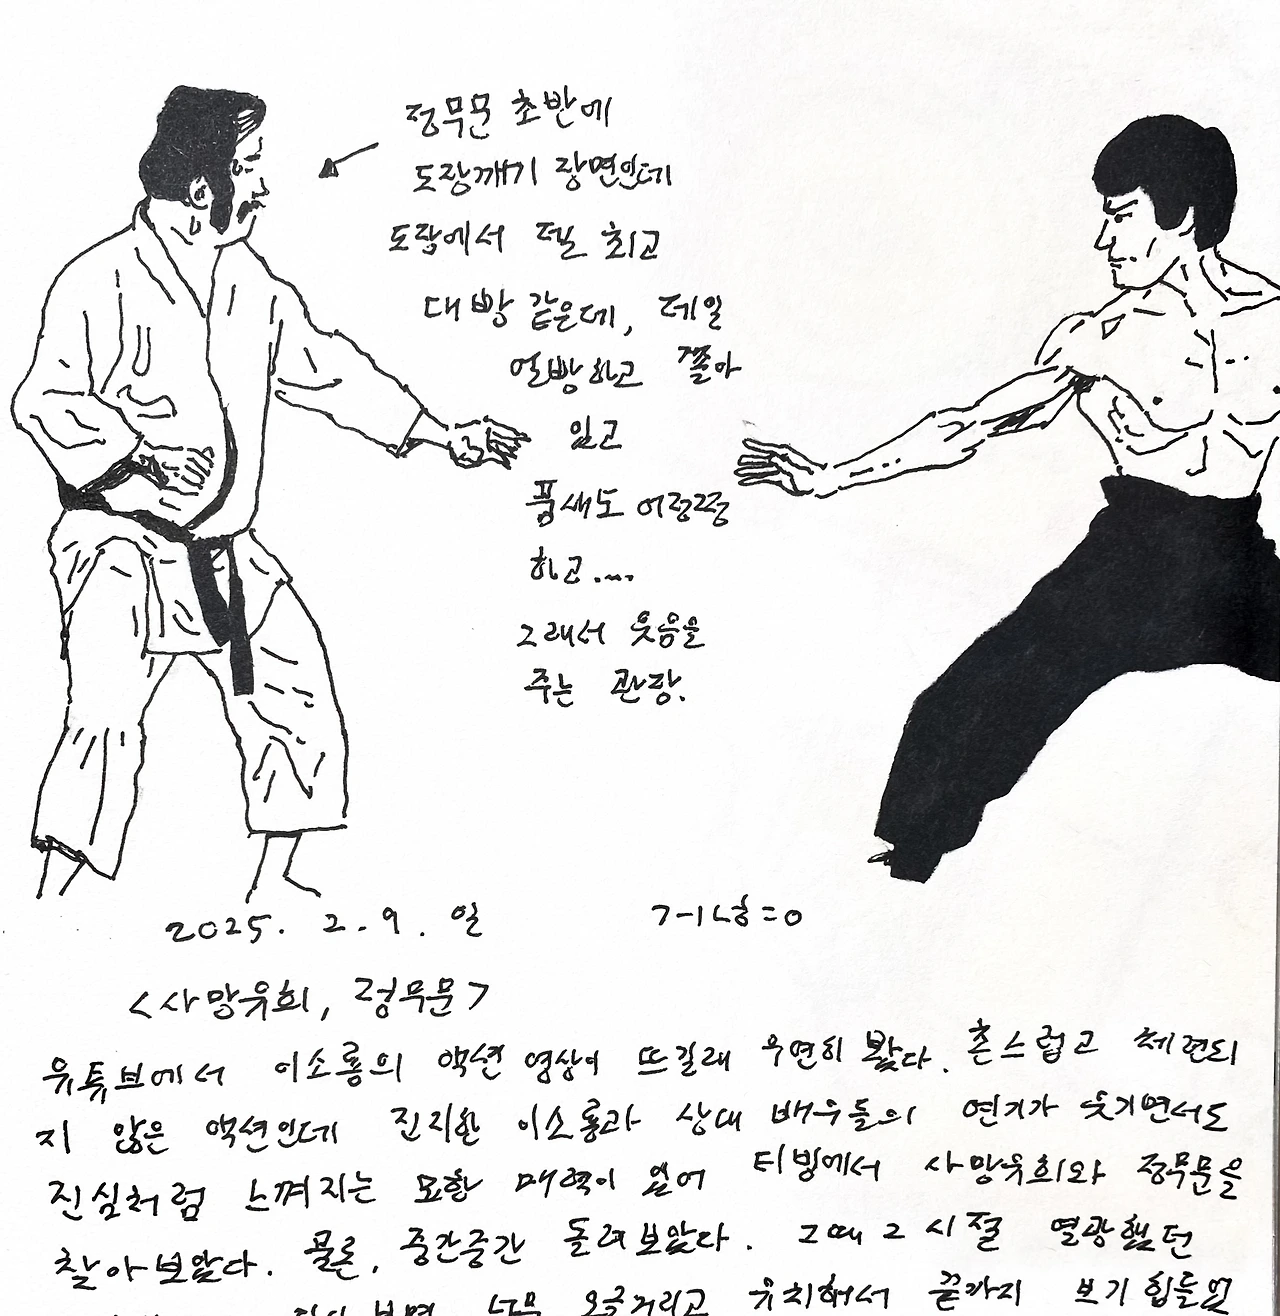 정무문 초반에
도장깨기 장면인데
도장에서 젤 최고
대빵 같은데, 제일
얼빵하고 쫄아
있고
품새도 어정쩡
하고....
그래서 웃음을
주는 관장.
2025. 2. 9. 일
<사망유희, 정무문>
유튜브에서 이소룡의 액션 영상이 뜨길래 우연히 봤다. 촌스럽고 세련되
지 않은 액션인데 진지한 이소룡과 상대 배우들의 연기가 웃기면서도
진심처럼 느껴지는 묘한 매력이 있어 티빙에서 사망유희와 정무문을
찾아보았다. 물론, 중간중간 돌려보았다. 그때 그 시절 열광했던
보면 너무 오글거리고 유치해서 끝까지 보기 힘들었